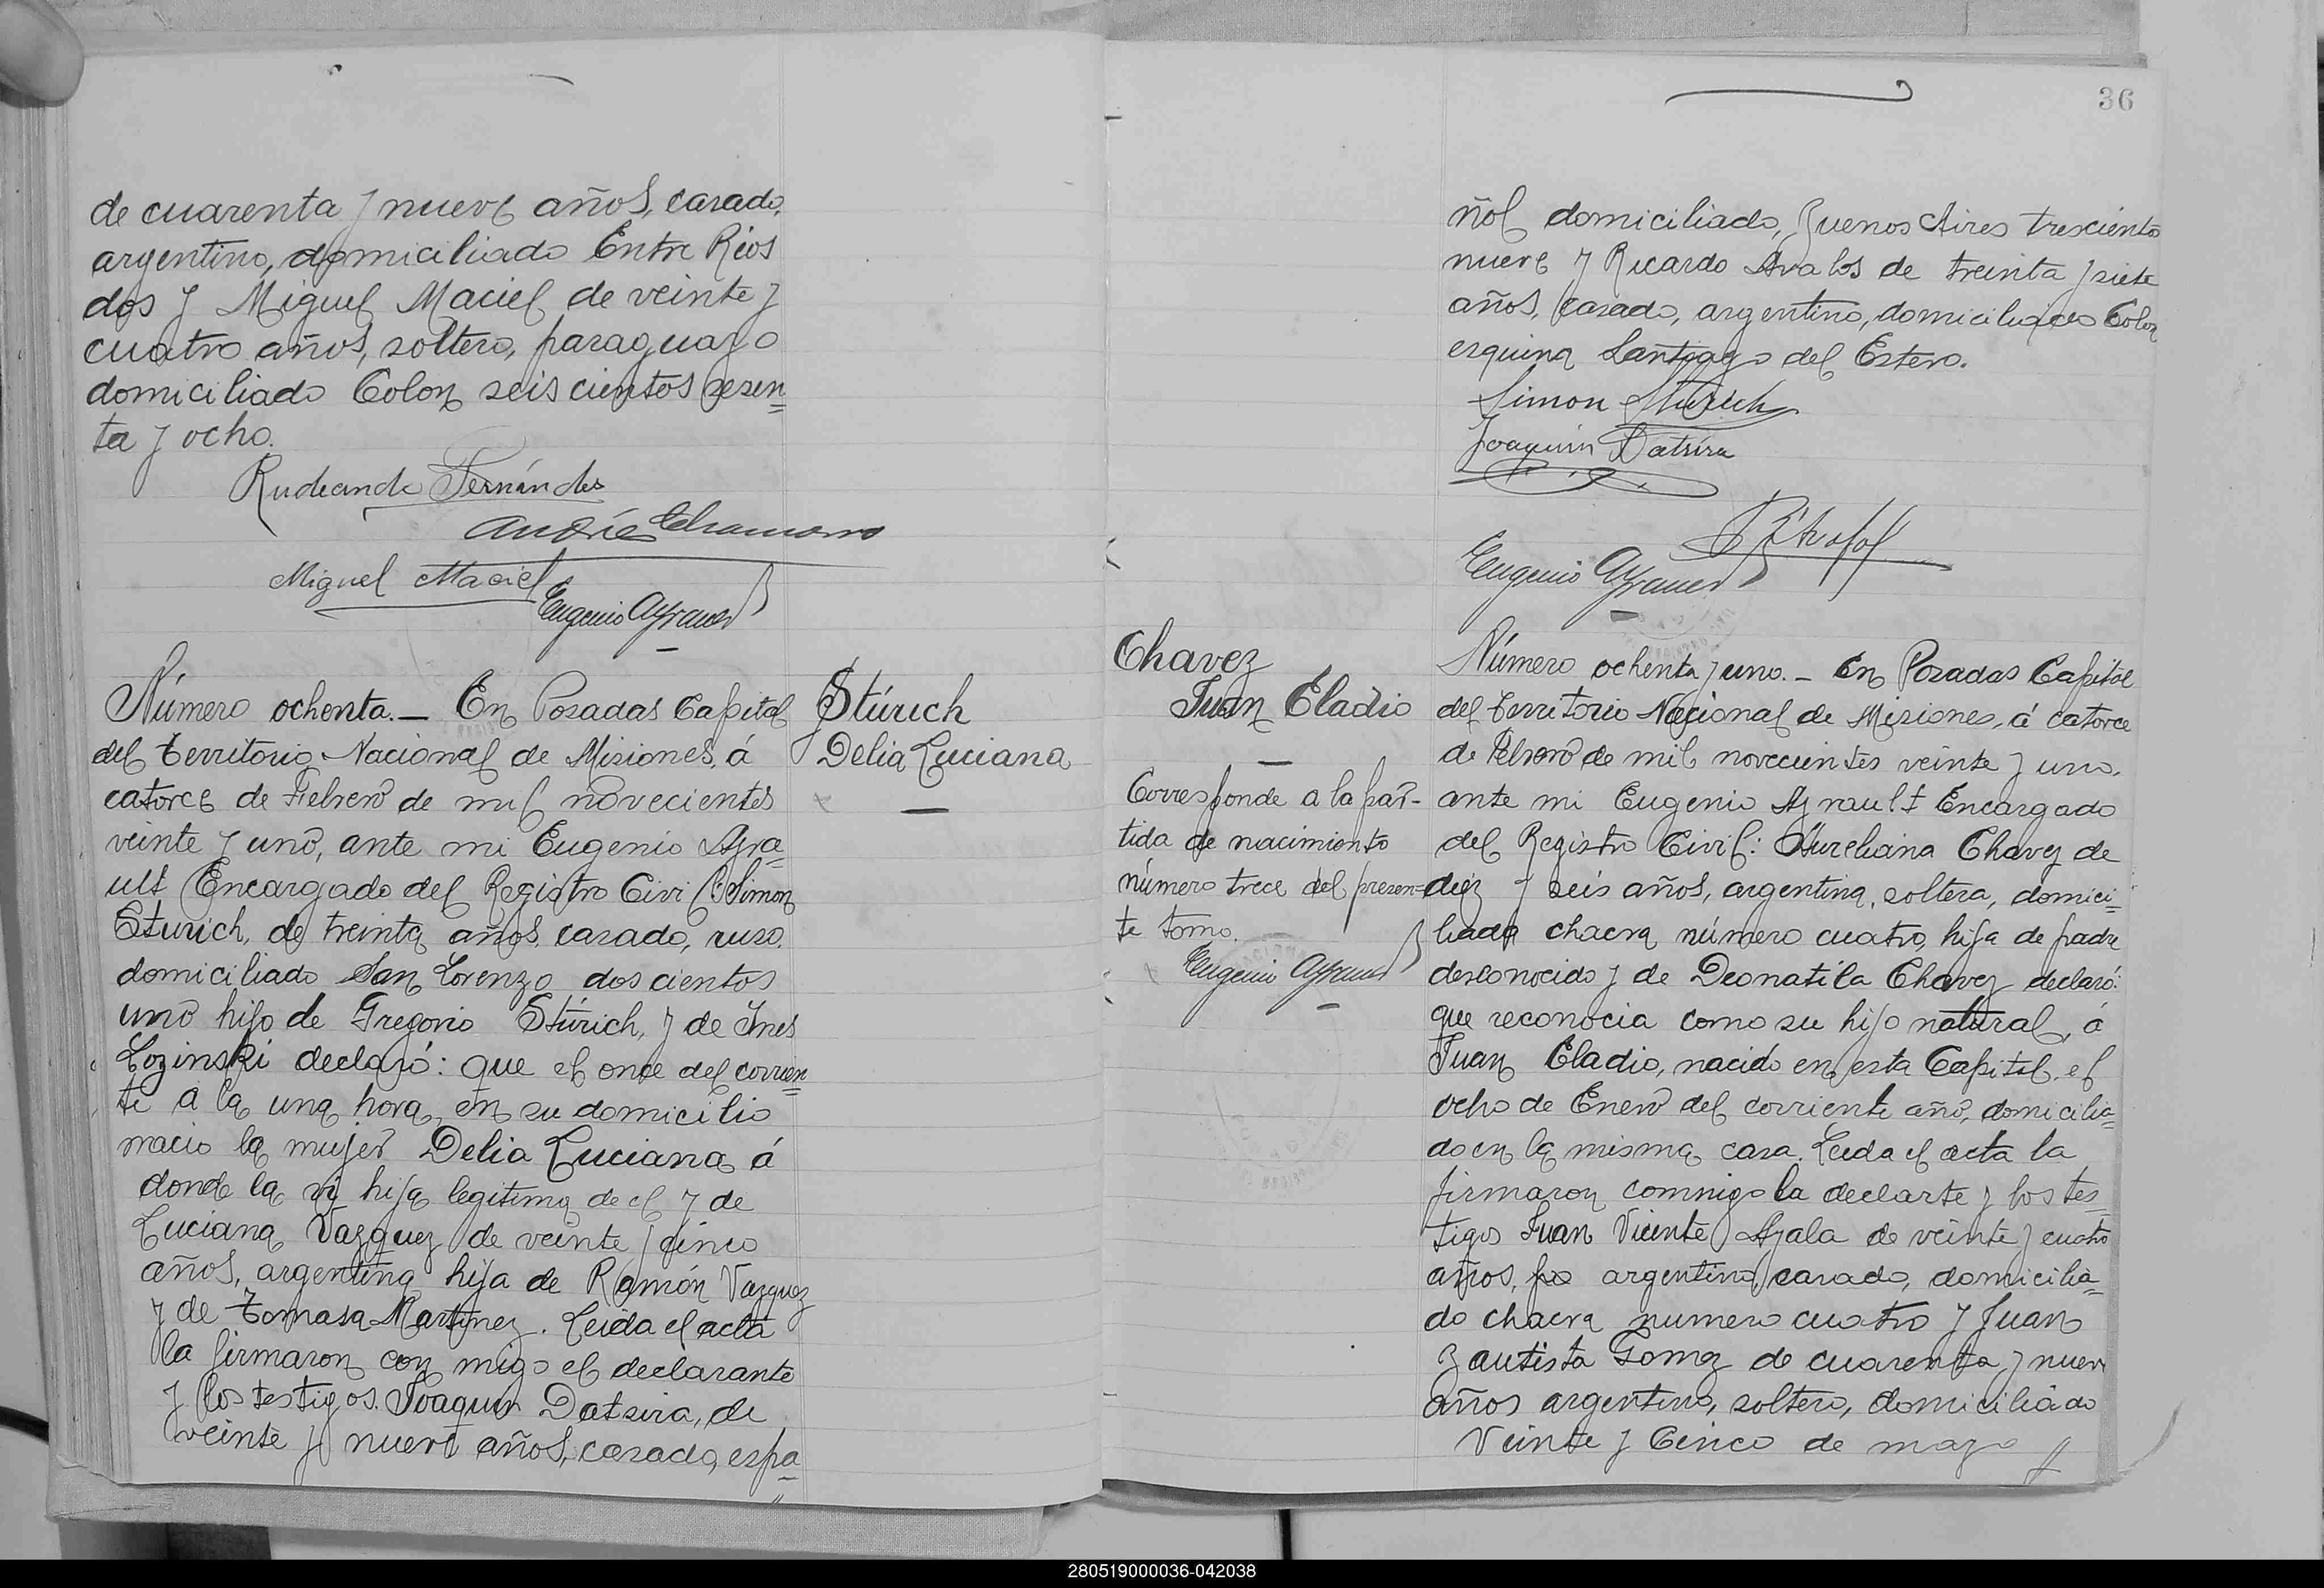 de cuarenta y nueve años, casado,
argentino, domiciliado Entre Rios
dos y Miguel Maciel de veinte y
cuatro años, soltero, paraguayo
domiciliado Colon seiscientos sesen=
ta y ocho.
Rudecindo Fernández
Andrés Chamorro
Miguel Maciel
Eugenio Ayrault
Número ochenta. — En Posadas Capital
del Territorio Nacional de Misiones, á
catorce de Febrero de mil novecientos
veinte y uno, ante mi Eugenio Ayra=
ult Encargado del Registro Civil: Simon
Sturich, de treinta años, casado, ruso,
domiciliado San Lorenzo doscientos
uno hijo de Gregorio Stúrich, y de Ines
Lozinski declaró: que el once del corrien=
te a la una hora, en su domicilio
nacio la mujer Delia Luciana á
donde la vi hija legitima de el y de
Luciana Vazquez de veinte y cinco
años, argentina hija de Ramón Vazquez
y de Tomasa Martinez. Leida el acta
la firmaron con migo el declarante
y los testigos Joaquin Datsira, de
veinte y nueve años, casado, espa=
Stúrich
Delia Luciana
36
ñol domiciliado, Buenos Aires trescientos
nueve y Ricardo Avalos de treinta y siete
años, casado, argentino, domiciliado Colon
esquina Santiago del Estero.
Simon Sturich
Joaquin Datsira
Eugenio Ayrault
Chavez
Juan Eladio
—
Corresponde a la par-
tida de nacimiento
número trece del presen=
te tomo.
Eugenio Ayrault
Número ochenta y uno. — En Posadas Capital
del Territorio Nacional de Misiones, á catorce
de Febrero de mil novecientos veinte y uno,
ante mi Eugenio Ayrault Encargado
del Registro Civil: Aureliana Chavez de
diez y seis años, argentina, soltera, domici=
liada chacra número cuatro, hija de padre
desconocido y de Deonatila Chavez declaró:
que reconocia como su hijo natural, á
Juan Eladio, nacido en esta Capital, el
ocho de Enero del corriente año, domicilia=
do en la misma casa. Leida el acta la
firmaron commigo la declarte y los tes=
tigos Juan Vicente Ayala de veinte y cuatro
años, argentino, casado, domicilia=
do chacra numero cuatro y Juan
Bautista Gomez de cuarenta y nueve
años argentino, soltero, domiciliado
Veinte y Cinco de mayo
280519000036-042038